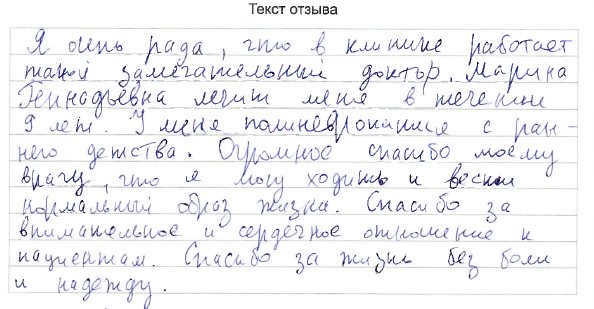 Текст отзыва
Я очень рада, что в клинике работает
такой замечательный доктор. Марина
Геннадьевна лечит меня в течении
9 лет. У меня полинейропатия с ран-
него детства. Огромное спасибо моему
врачу, что я могу ходить и вести
нормальный образ жизни. Спасибо за
внимательное и сердечное отношение к
пациентам. Спасибо за жизнь без боли
и надежду.